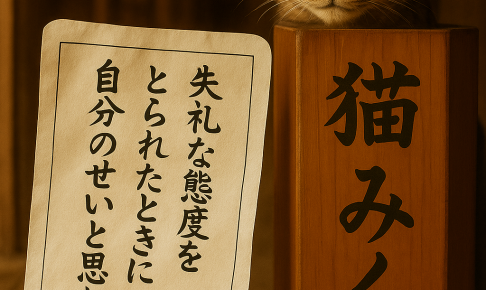 猫み
失礼な態度を
とられたときに
自分のせいと思